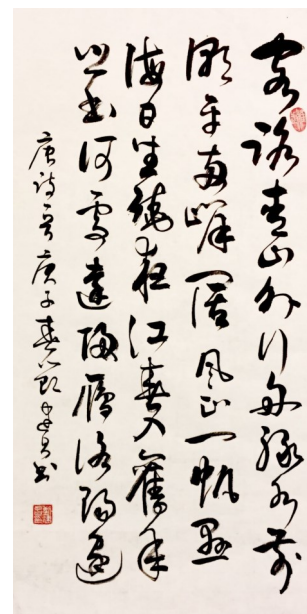 客路青山外行舟綠水前
潮平兩岸闊風正一帆懸
海日生殘夜江春入舊年
鄉書何處達歸雁洛陽邊
唐詩一首庚子春書